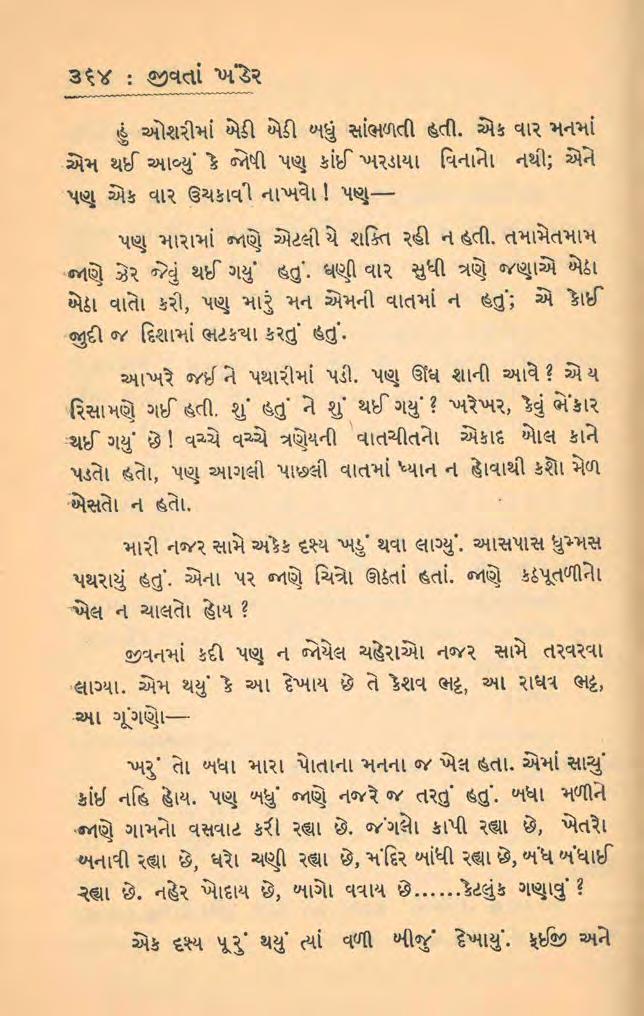 ૩૬૪ : જીવતાં ખંડેર
હું ઓશરીમાં બેઠી બેઠી બધું સાંભળતી હતી. એક વાર મનમાં
એમ થઈ આવ્યું કે જોષી પણ કાંઈ ખરડાયા વિનાનો નથી; એને
પણ એક વાર ઉચકાવી નાખવો! પણ—
પણ મારામાં જાણે એટલીયે શક્તિ રહી ન હતી. તમામેતમામ
જાણે ઝેર જેવું થઈ ગયું હતું. ઘણી વાર સુધી ત્રણે જણાએ બેઠા
બેઠા વાતો કરી, પણ મારું મન એમની વાતમાં ન હતું; એ કોઈ
જુદી જ દિશામાં ભટકયા કરતું હતું.
આખરે જઈ ને પથારીમાં પડી. પણ ઊંઘ શાની આવે? એ ય
રિસામણે ગઈ હતી. શું હતું ને શું થઈ ગયું? ખરેખર, કેવું ભેંકાર
થઈ ગયું છે! વચ્ચે વચ્ચે ત્રણેયની વાતચીતનો એકાદ બોલ કાને
પડતો હતો, પણ આગલી પાછલી વાતમાં ધ્યાન ન હોવાથી કશો મેળ
બેસતો ન હતો.
મારી નજર સામે અકેક દૃશ્ય ખડું થવા લાગ્યું. આસપાસ ધુમ્મસ
પથરાયું હતું. એના પર જાણે ચિત્રો ઊઠતાં હતાં. જાણે કઠપૂતળીનો
ખેલ ન ચાલતો હોય?
જીવનમાં કદી પણ ન જોયેલ ચહેરાઓ નજર સામે તરવરવા
લાગ્યા. એમ થયું કે આ દેખાય છે તે કેશવ ભટ્ટ, આ રાઘવ ભટ્ટ,
આ ગૂંગણો—
ખરું તો બધા મારા પોતાના મનના જ ખેલ હતા. એમાં સાચું
કાંઈ નહિ હોય. પણ બધું જાણે નજરે જ તરતું હતું. બધા મળીને
જાણે ગામનો વસવાટ કરી રહ્યા છે. જંગલો કાપી રહ્યા છે, ખેતરો
બનાવી રહ્યા છે, ઘરો ચણી રહ્યા છે, મંદિર બાંધી રહ્યા છે, બંધ બંધાઈ
રહ્યા છે. નહેર ખોદાય છે, બાગો વવાય છે......કેટલુંક ગણાવું?
એક દૃશ્ય પૂરું થયું ત્યાં વળી બીજું દેખાયું. ફઈજી અને